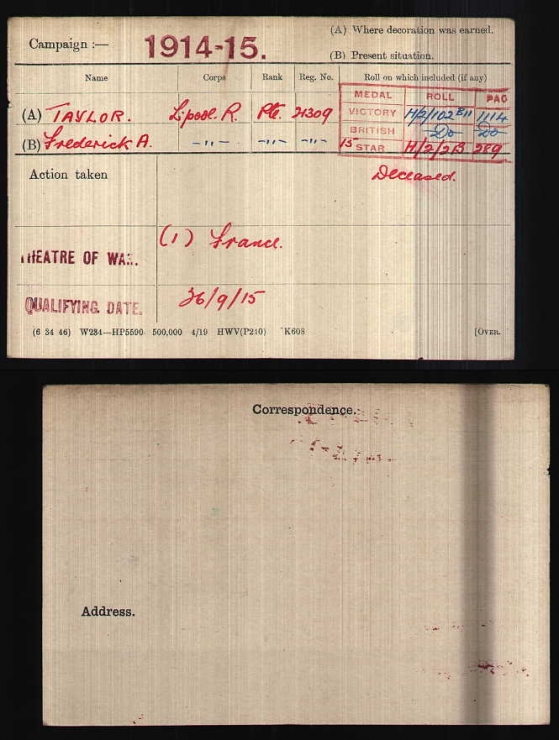 Campaign :— 1914-15.
(A) Where decoration was earned.
(B) Present situation.
Name Corps Rank Reg. No. Roll on which included (if any)
MEDAL ROLL PAG
(A) TAYLOR. L'pool. R. Pte. 21309 VICTORY H/2/102 B11 1114
(B) Frederick A. -"- -"- -"- BRITISH Do Do
15 STAR H/2/2B 289
Action taken Deceased.
THEATRE OF WAR. (1) France.
QUALIFYING DATE. 26/9/15
(6 34 46) W284—HP5590 500,000 4/19 HWV(P210) K608 [OVER.
Correspondence.
Address.